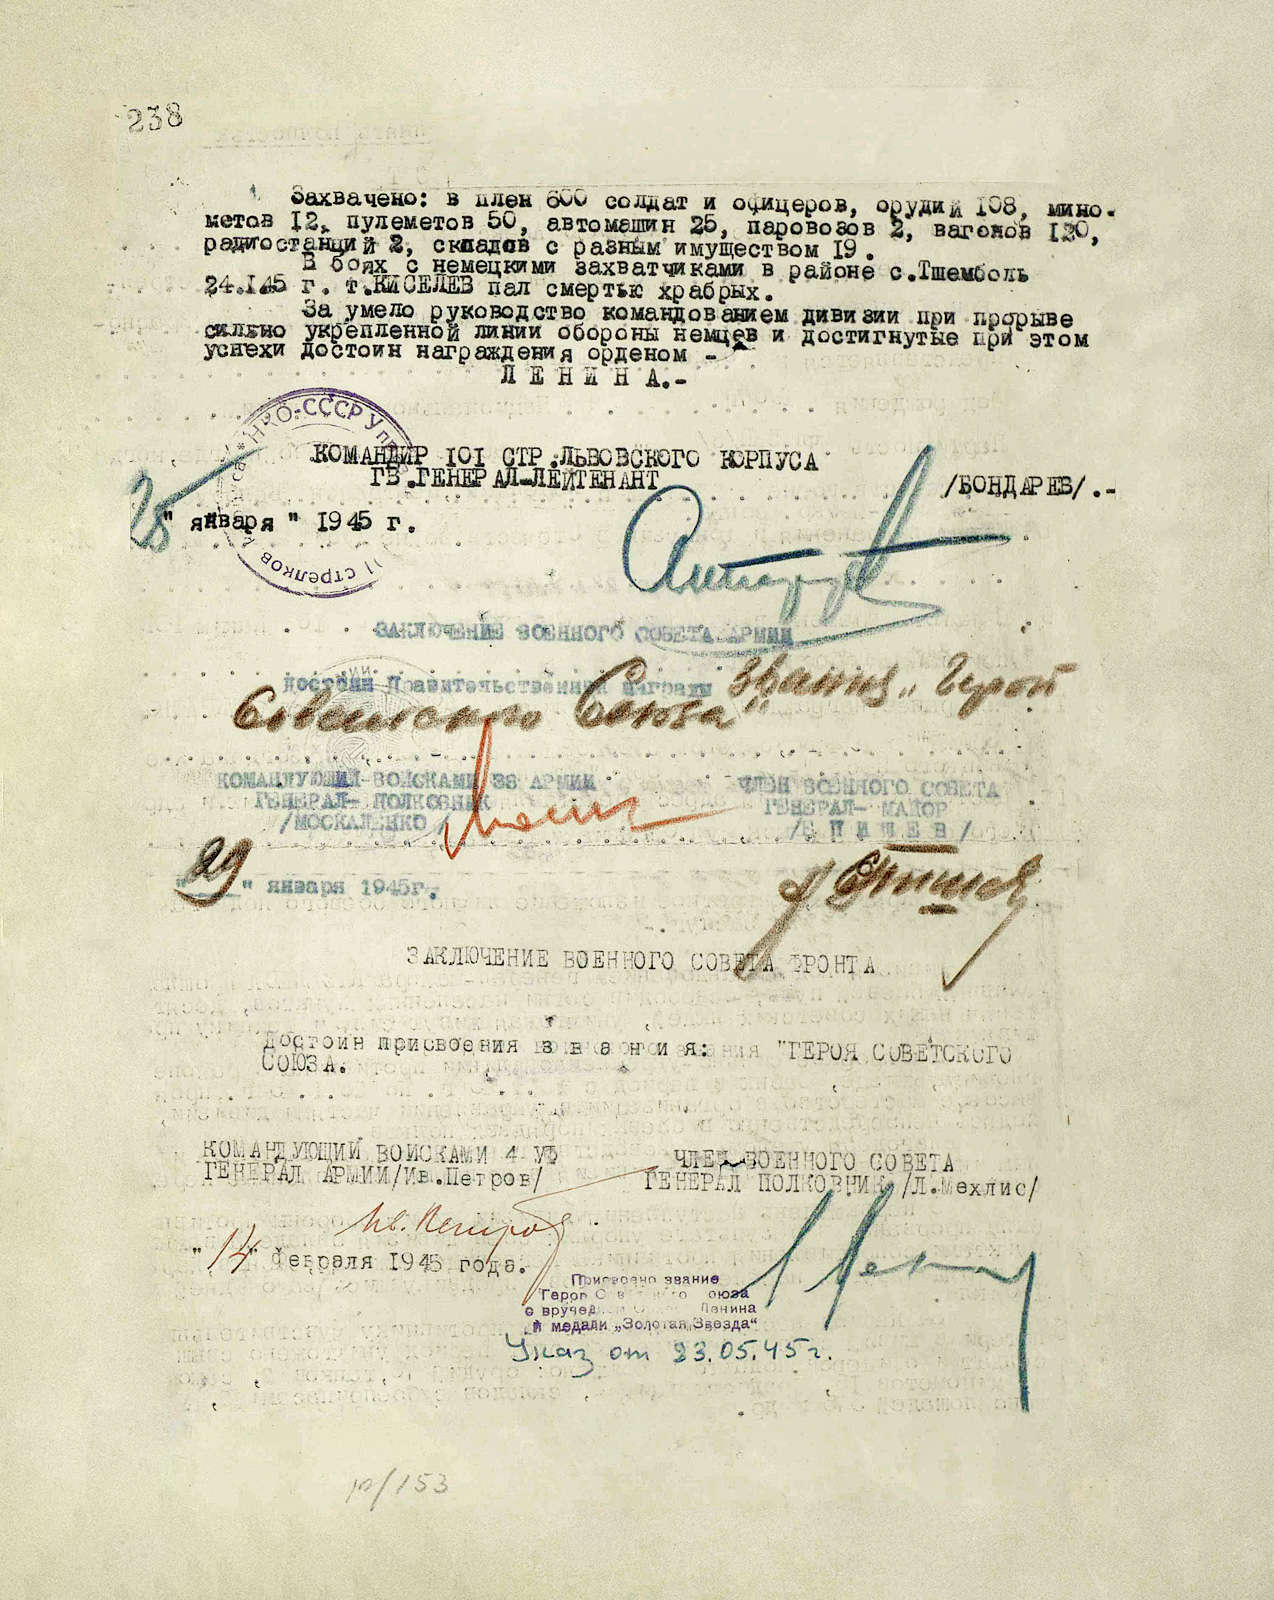 238
Захвачено: в плен 600 солдат и офицеров, орудий 108, мино-
метов 12, пулеметов 50, автомашин 25, паровозов 2, вагонов 120,
радиостанций 2, складов с разным имуществом 19.
В боях с немецкими захватчиками в районе с.Тшемболь
24.1.45 г. т.КИСЕЛЕВ пал смертью храбрых.
За умело руководство командованием дивизии при прорыве
сильно укрепленной линии обороны немцев и достигнутые при этом
успехи достоин награждения орденом -
ЛЕНИНА.-
НКО-СССР
стрелков
КОМАНДИР 101 СТР.ЛЬВОВСКОГО КОРПУСА
ГВ.ГЕНЕРАЛ-ЛЕЙТЕНАНТ
/БОНДАРЕВ/.-
25 " января " 1945 г.
ЗАКЛЮЧЕНИЕ ВОЕННОГО СОВЕТА АРМИИ
достоин Правительственной награды звания „Герой
Советского Союза"
КОМАНДУЮЩИЙ ВОЙСКАМИ 38 АРМИИ
ГЕНЕРАЛ- ПОЛКОВНИК
/МОСКАЛЕНКО/
ЧЛЕН ВОЕННОГО СОВЕТА
ГЕНЕРАЛ- МАЙОР
/ЕПИШЕВ/
"29" января 1945г.
ЗАКЛЮЧЕНИЕ ВОЕННОГО СОВЕТА ФРОНТА
Достоин присвоения звания: "ГЕРОЯ СОВЕТСКОГО
СОЮЗА.
КОМАНДУЮЩИЙ ВОЙСКАМИ 4 УФ
ГЕНЕРАЛ АРМИИ/Ив.Петров/
ЧЛЕН ВОЕННОГО СОВЕТА
ГЕНЕРАЛ ПОЛКОВНИК /Л.Мехлис/
Ив. Петров
"14" февраля 1945 года.
Присвоено звание
Героя Советского Союза
с вручением Ордена Ленина
и медали „Золотая Звезда"
Указ от 23.05.45 г.
р/153